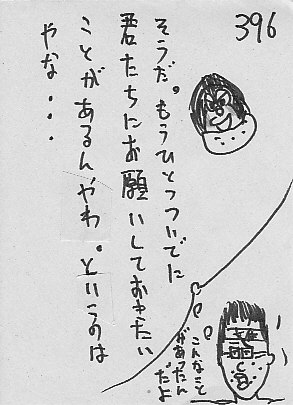 396
そうだ。もうひとつついでに
君たちにお願いしておきたい
ことがあるんやわ。というのは
やな・・・
こんなこと
があったん
だよ